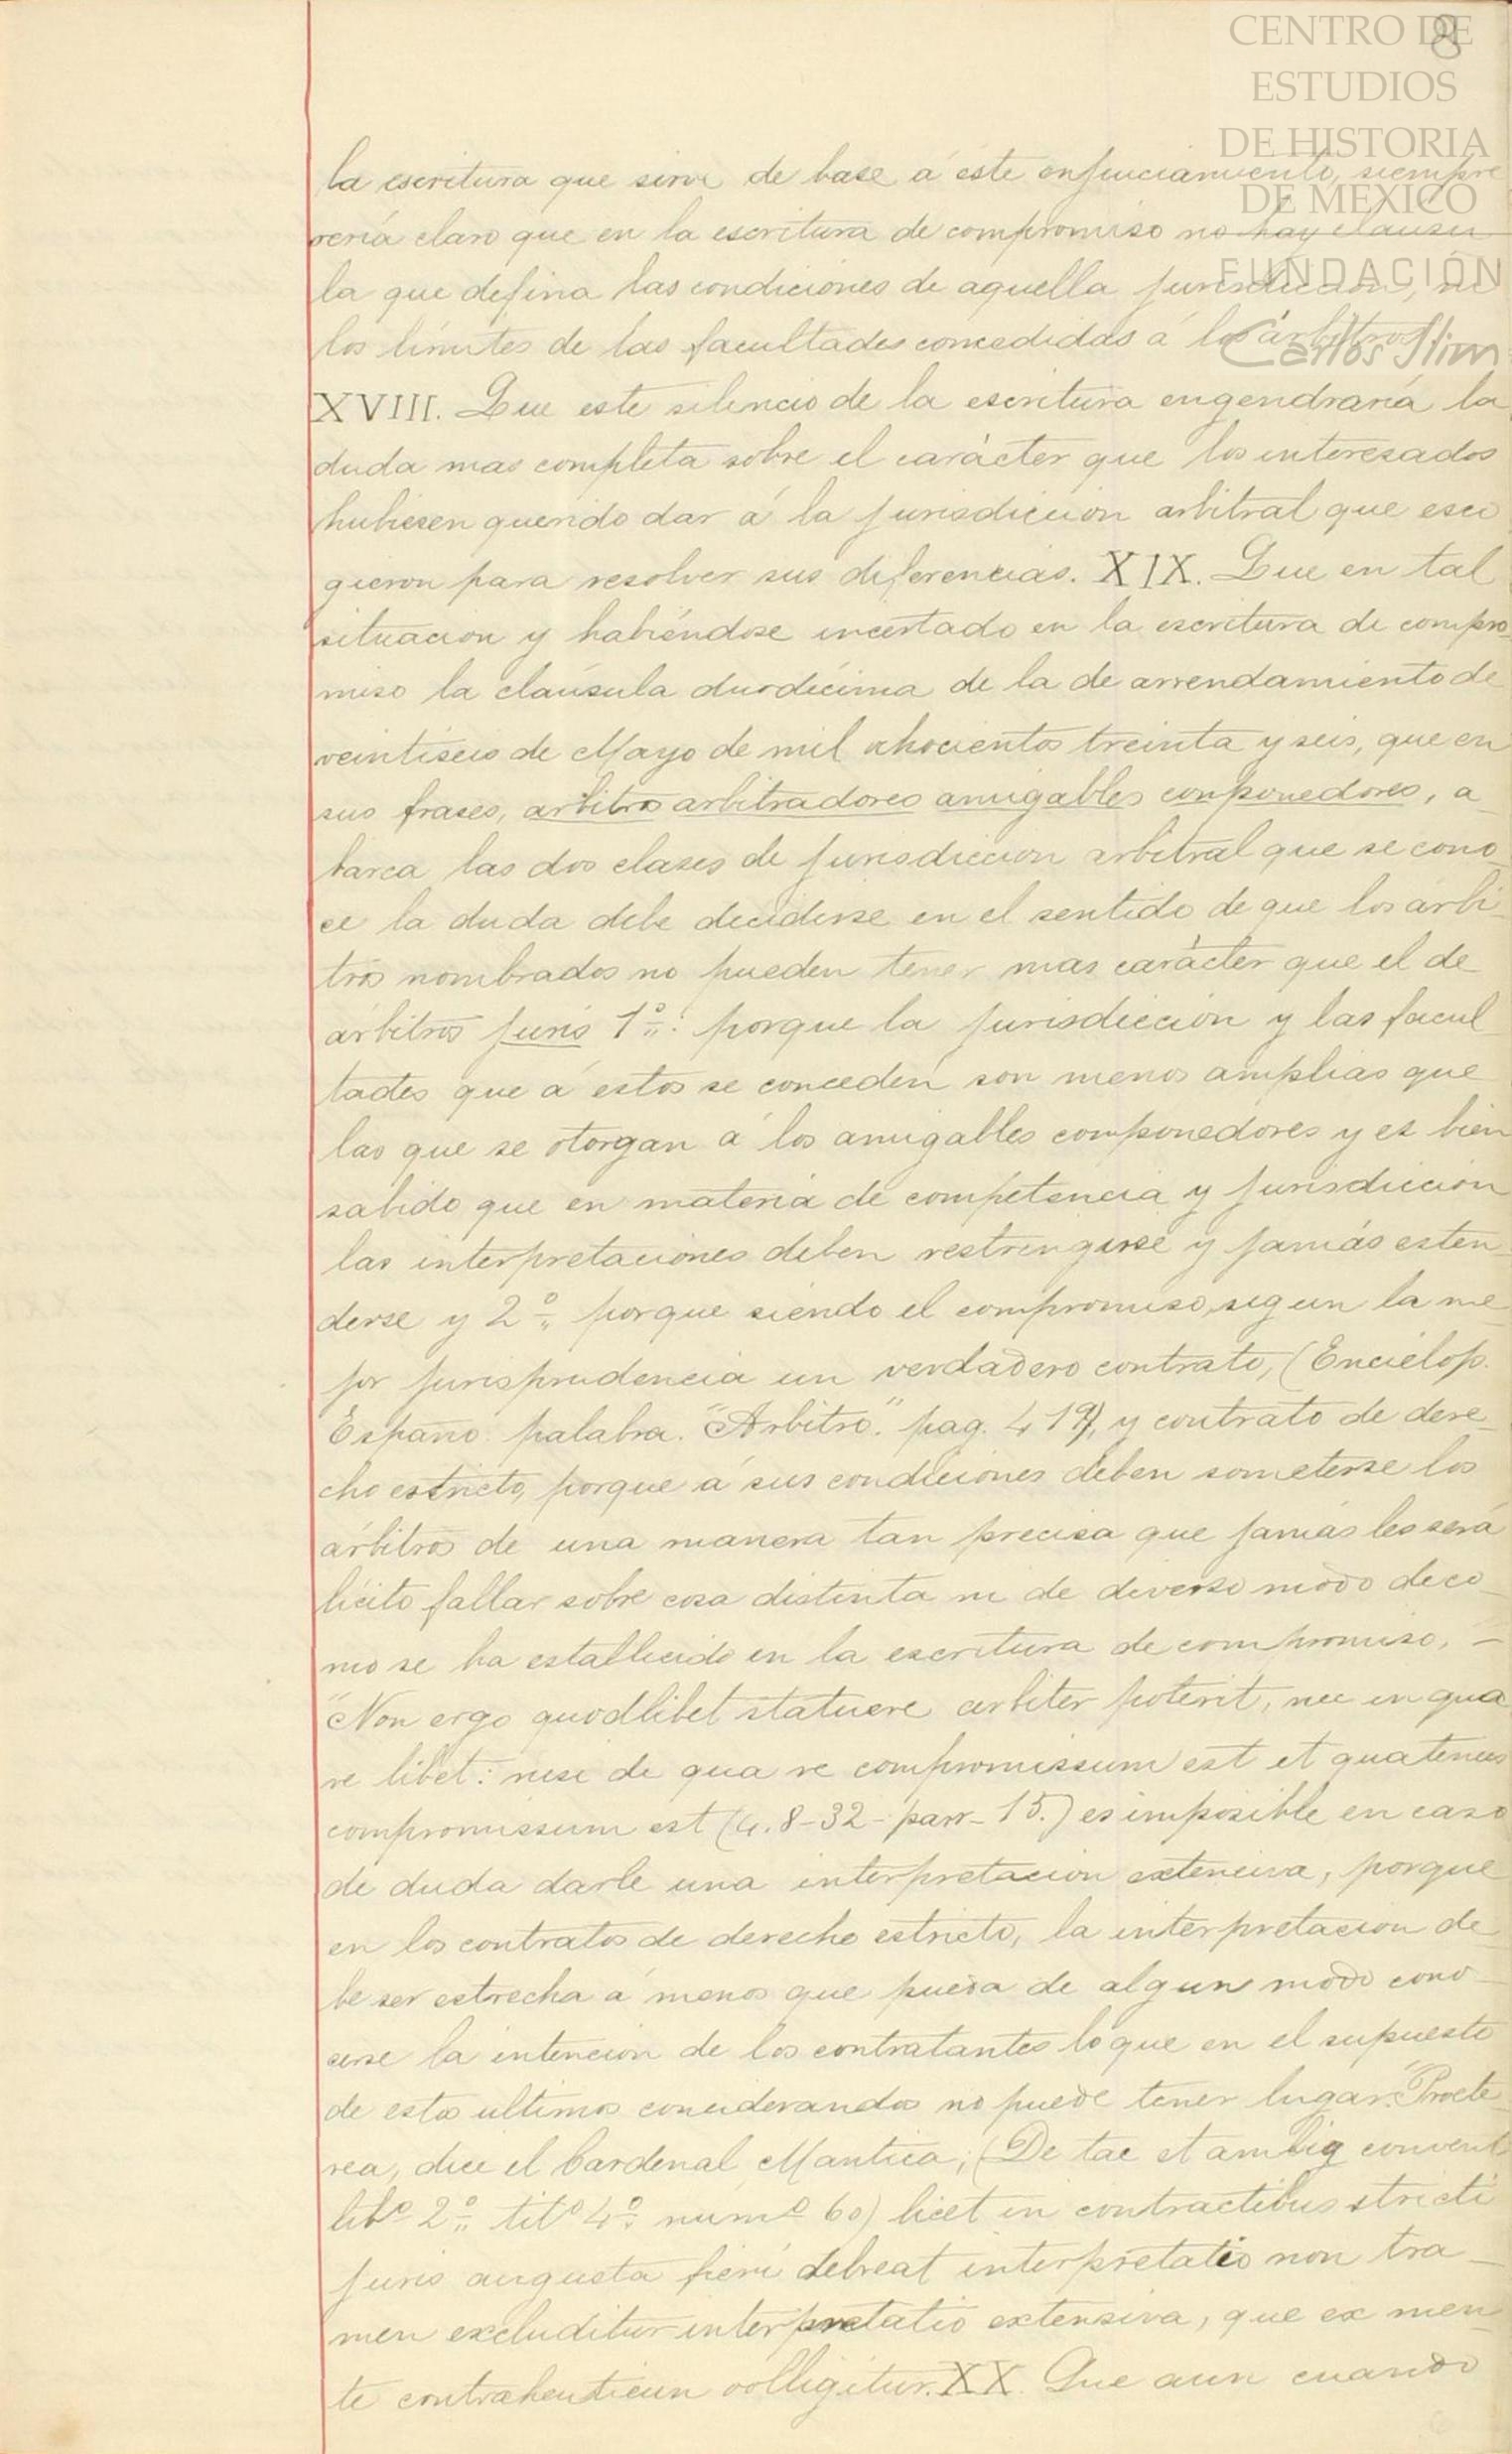 8
CENTRO DE
ESTUDIOS
DE HISTORIA
DE MEXICO
FUNDACIÓN
Carlos Slim
la escritura que sirve de base á este enjuiciamiento, siempre
sería claro que en la escritura de compromiso no hay cláusu
la que defina las condiciones de aquella jurisdiccion, ni
los límites de las facultades concedidas á los árbitros
XVIII. Que este silencio de la escritura engendraría la
duda mas completa sobre el carácter que los interesados
hubiesen querido dar á la jurisdiccion arbitral que esco
gieron para resolver sus diferencias. XIX. Que en tal
situacion y habiéndose incertado en la escritura de compro
miso la clausula duodécima de la de arrendamiento de
veintiseis de Mayo de mil ochocientos treinta y seis, que en
sus frases, arbitros arbitradores amigables componedores, a
barca las dos clases de jurisdiccion arbitral que se cono
ce la duda debe decidirse en el sentido de que los árbi
tros nombrados no pueden tener mas carácter que el de
árbitros juris 1º: porque la jurisdicción y las facul
tades que á estos se conceden son menos amplias que
las que se otorgan á los amigables componedores y es bien
sabido que en materia de competencia y jurisdiccion
las interpretaciones deben restringirse y jamás esten
derse y 2º porque siendo el compromiso, segun la me
jor jurisprudencia un verdadero contrato, (Enciclop.
Españo. palabra. "Arbitro." pag. 419), y contrato de dere
cho estricto, porque á sus condiciones deben someterse los
árbitros de una manera tan precisa que jamás les será
lícito fallar sobre cosa distinta ni de diverso modo de co
mo se ha establecido en la escritura de compromiso, -
"Non ergo quodlibet statuere arbiter poterit, nec in qua
re libet: nisi de qua re compromissum est et quatenus
compromissum est (4.8-32-parr-15.) es imposible en caso
de duda darle una interpretacion extenciva, porque
en los contratos de derecho estricto, la interpretacion de
be ser estrecha á menos que pueda de algun modo cono
cerse la intencion de los contratantes lo que en el supuesto
de estos ultimos considerandos no puede tener lugar. "Praete
rea, dice el Cardenal Mantica; (De tac et ambig convent
libº 2º titº 4º numº 60) licet in contractibus stricti
juris angusta fieri debreat interpretatio non tra
men excluditur interpretatio extensiva, que ex men
te contrahentium colligitur. XX. Que aun cuando